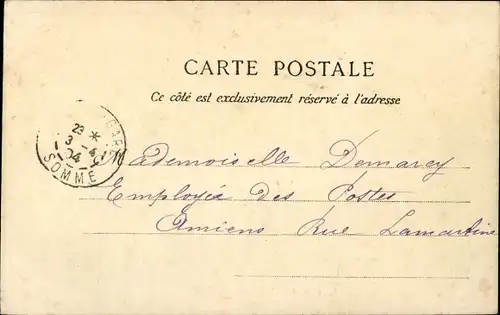 CARTE POSTALE
Ce côté est exclusivement réservé à l'adresse
GARE
23
3 -4
04
SOMME
Mademoiselle Demarcy
Employée des Postes
Amiens Rue Lamartine